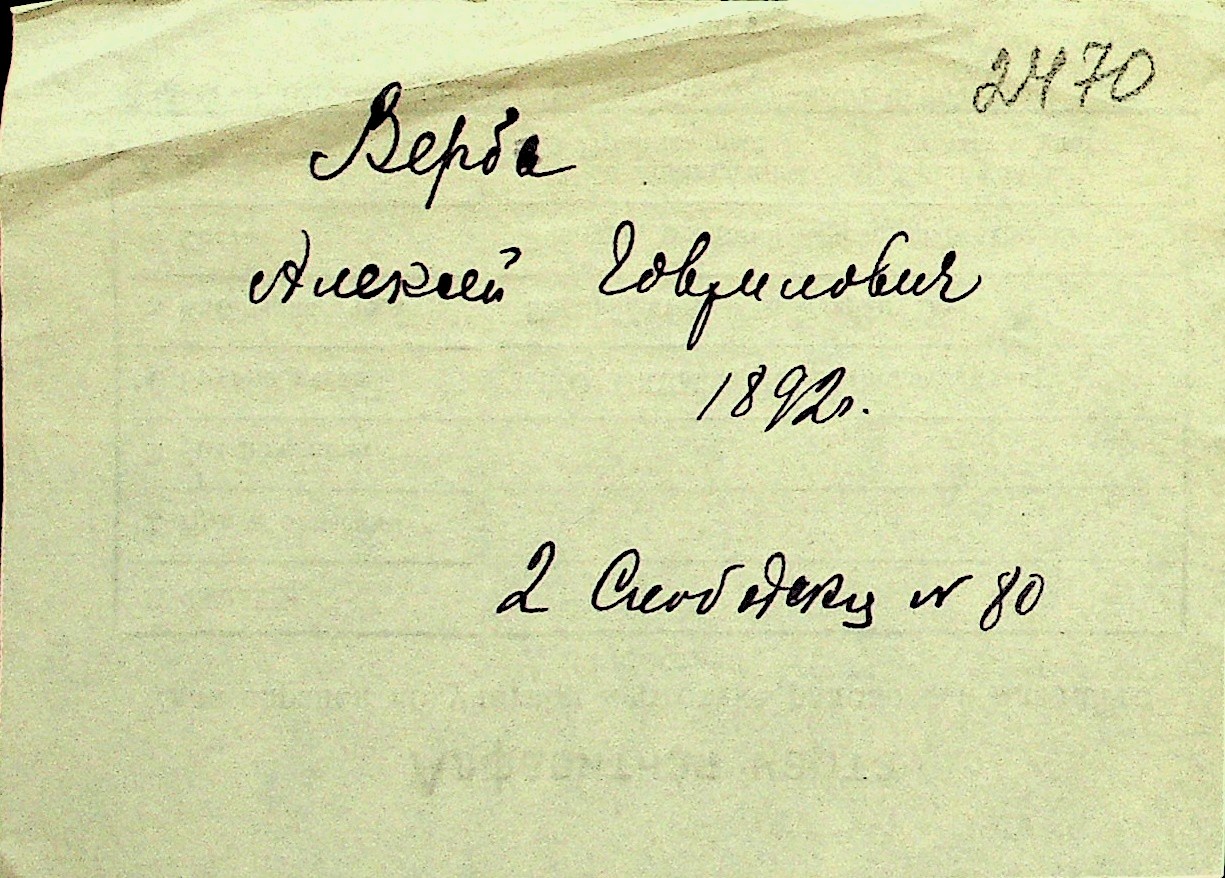 2470
Верба
Алексей Гаврилович
1892г.
2 Слободская № 80